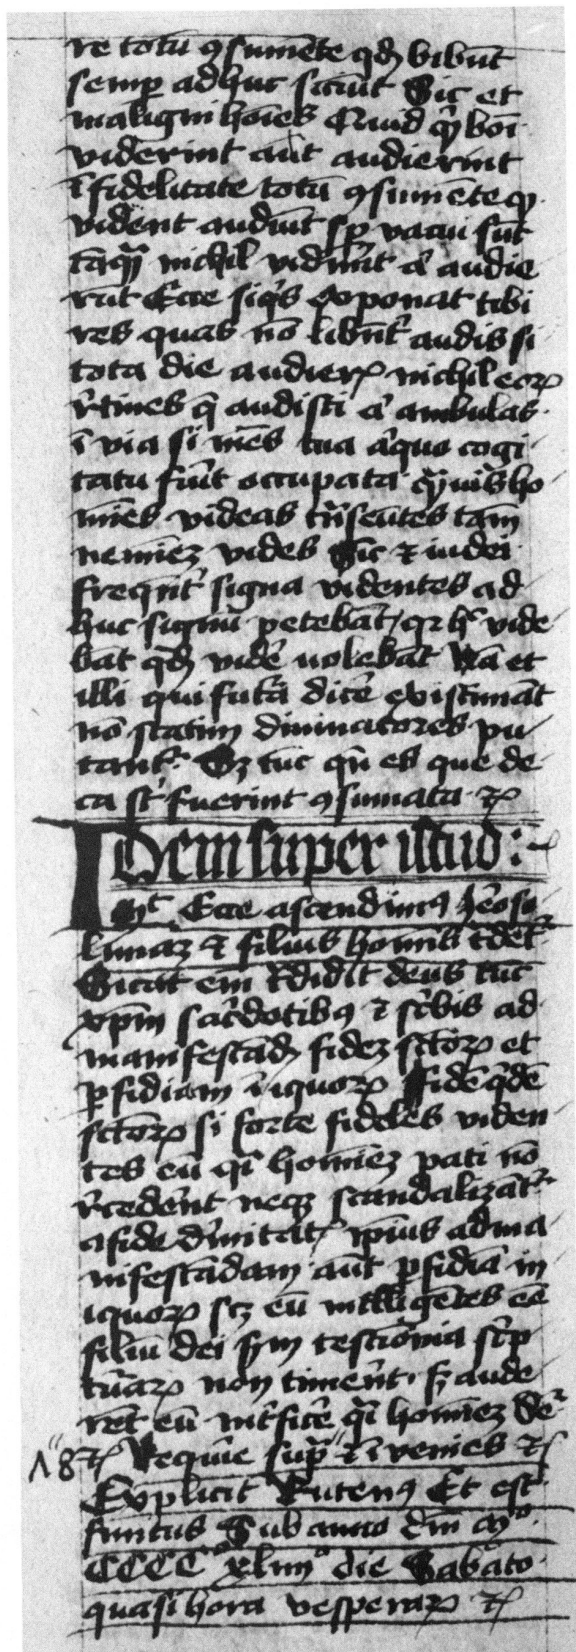 re totū ꝯsumēte qđ bibūt
semꝑ adhuc sciūt Sic et
maligni hoīes Quid qͥ boī
viderint aūt audierint
ī fidelitate totū ꝯsumēte qꝫ
vident audiūt sꝑ vacui sūt
tāqͣ nichil vidͤrīt aͭ audie
rūt Ecce siqͥs exponat tibi
res quas nō libn̄t audis si
tota die audierꝫ nichil eoꝝ
rͤtines qͣ audisti aͭ ambulas
ī via si mēs tua aͥquo cogi
tatu fūit occupata qͣuīs ho
mīes videas trͣnseūtes tam̄
neminēꝫ vides Sic ⁊ iudei
freqn̄t signa videntes ad
huc signū petebāt qꝛ hͨ vide
bāt qđ vidē nolebāt Nā et
illi qui futͣa dicē existimāt
nō statim diuinatores pu
tant᷑ Sꝫ tūc qn̄ es que de
ca sͭ fuerint ꝯsumata ⁊ꝫ
IDem super istud :
Mͭ Ecce ascendimꝰ Jeroso
limaꝫ ⁊ filius homīs tͣdet᷑
Sicut em̄ tͣdidit deus tūc
xp̄m sacͣdotibꝰ ⁊ scͥbis ad
manifestādꝫ fidеꝫ sctoꝝ et
ꝑfidiam īiquoꝝ Fidē qͥdē
sctoꝝ si forte fideles viden
tes eū qͥ homineꝫ pati nō
rͤcederͤnt neqꝫ scandalizāt᷑
a fide dīuitatꝭ ip̄ius ad ma
nifestādam aūt ꝑfidiā in
iquoꝝ scꝫ eū intelligētes eē
filiū dei ꝑ testimōnia scͥp
tͣuaꝝ non timerēt sꝫ aude
rēt eū int͛ficē qͥ homineꝫ
⁊ꝫ Requie supͣ ⁊ īvenies ⁊ꝫ
Explicit Rutenꝰ Et est
finitus Sub anno dn̄i Mͦ
CCCCͦ xliiiͦ die Sabato
quasi hora vesperaꝝ ⁊ꝫ